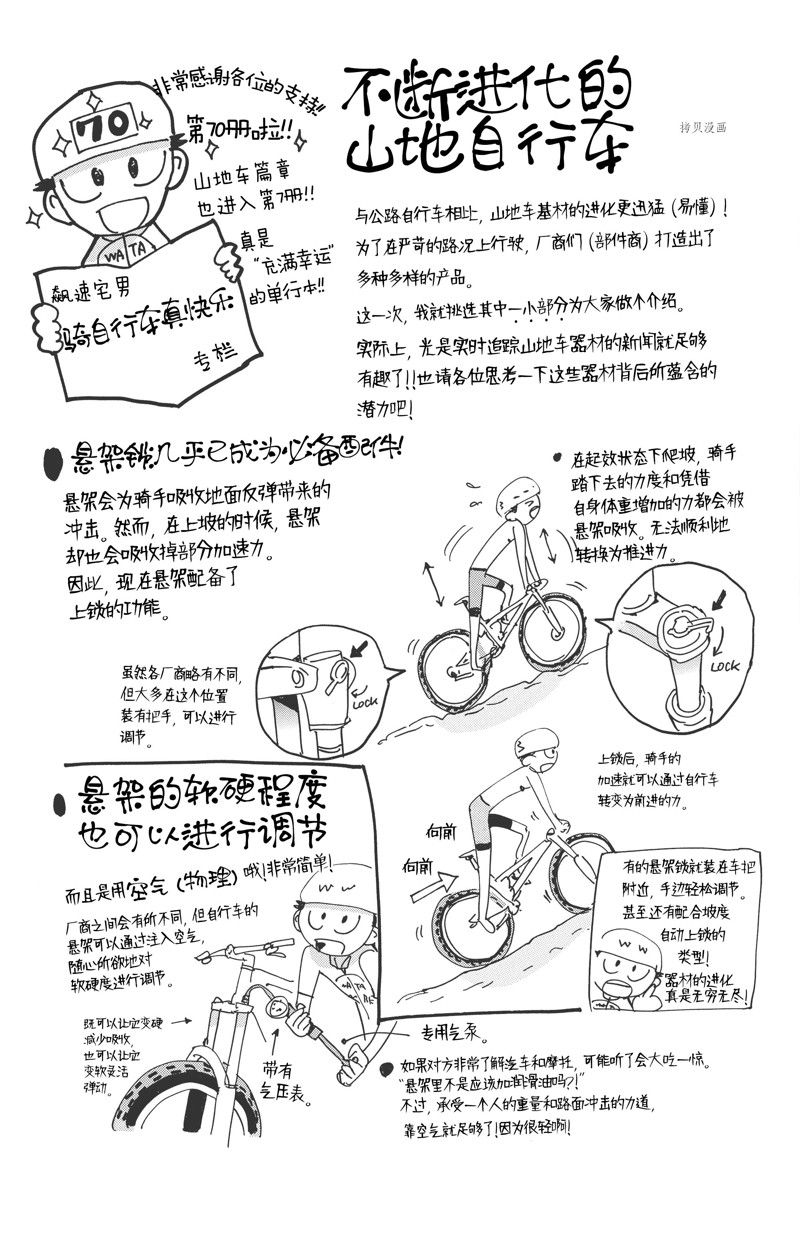 非常感谢各位的支持!!
第70册啦!!
山地车篇章
也进入第7册!!
真是
“充满幸运”
的单行本!!
70
WATA
飙速宅男
骑自行车真快乐
专栏
不断进化的
山地自行车
拷贝漫画
与公路自行车相比，山地车基材的进化更迅猛（易懂）！
为了在严苛的路况上行驶，厂商们（部件商）打造出了
多种多样的产品。
这一次，我就挑选其中一小部分为大家做个介绍。
实际上，光是实时追踪山地车器材的新闻就足够
有趣了！！也请各位思考一下这些器材背后所蕴含的
潜力吧！
●悬架锁几乎已成为必备配件！
悬架会为骑手吸收地面反弹带来的
冲击。然而，在上坡的时候，悬架
却也会吸收掉部分加速力。
因此，现在悬架配备了
上锁的功能。
●在起效状态下爬坡，骑手
踏下去的力度和凭借
自身体重增加的力都会被
悬架吸收。无法顺利地
转换为推进力。
虽然各厂商略有不同，
但大多在这个位置
装有把手，可以进行
调节。
LOCK
LOCK
上锁后，骑手的
加速就可以通过自行车
转变为前进的力。
向前
向前
有的悬架锁就装在车把
附近，手边轻松调节。
甚至还有配合坡度
自动上锁的
类型！
器材的进化
真是无穷无尽！
●悬架的软硬程度
也可以进行调节
而且是用空气（物理）哦！非常简单！
厂商之间会有所不同，但自行车的
悬架可以通过注入空气，
随心所欲地对
软硬度进行调节。
既可以让它变硬
减少吸收，
也可以让它
变软灵活
弹动。
带有
气压表。
专用气泵。
●如果对方非常了解汽车和摩托，可能听了会大吃一惊。
“悬架里不是应该加润滑油吗？！”
不过，承受一个人的重量和路面冲击的力道，
靠空气就足够了！因为很轻啊！